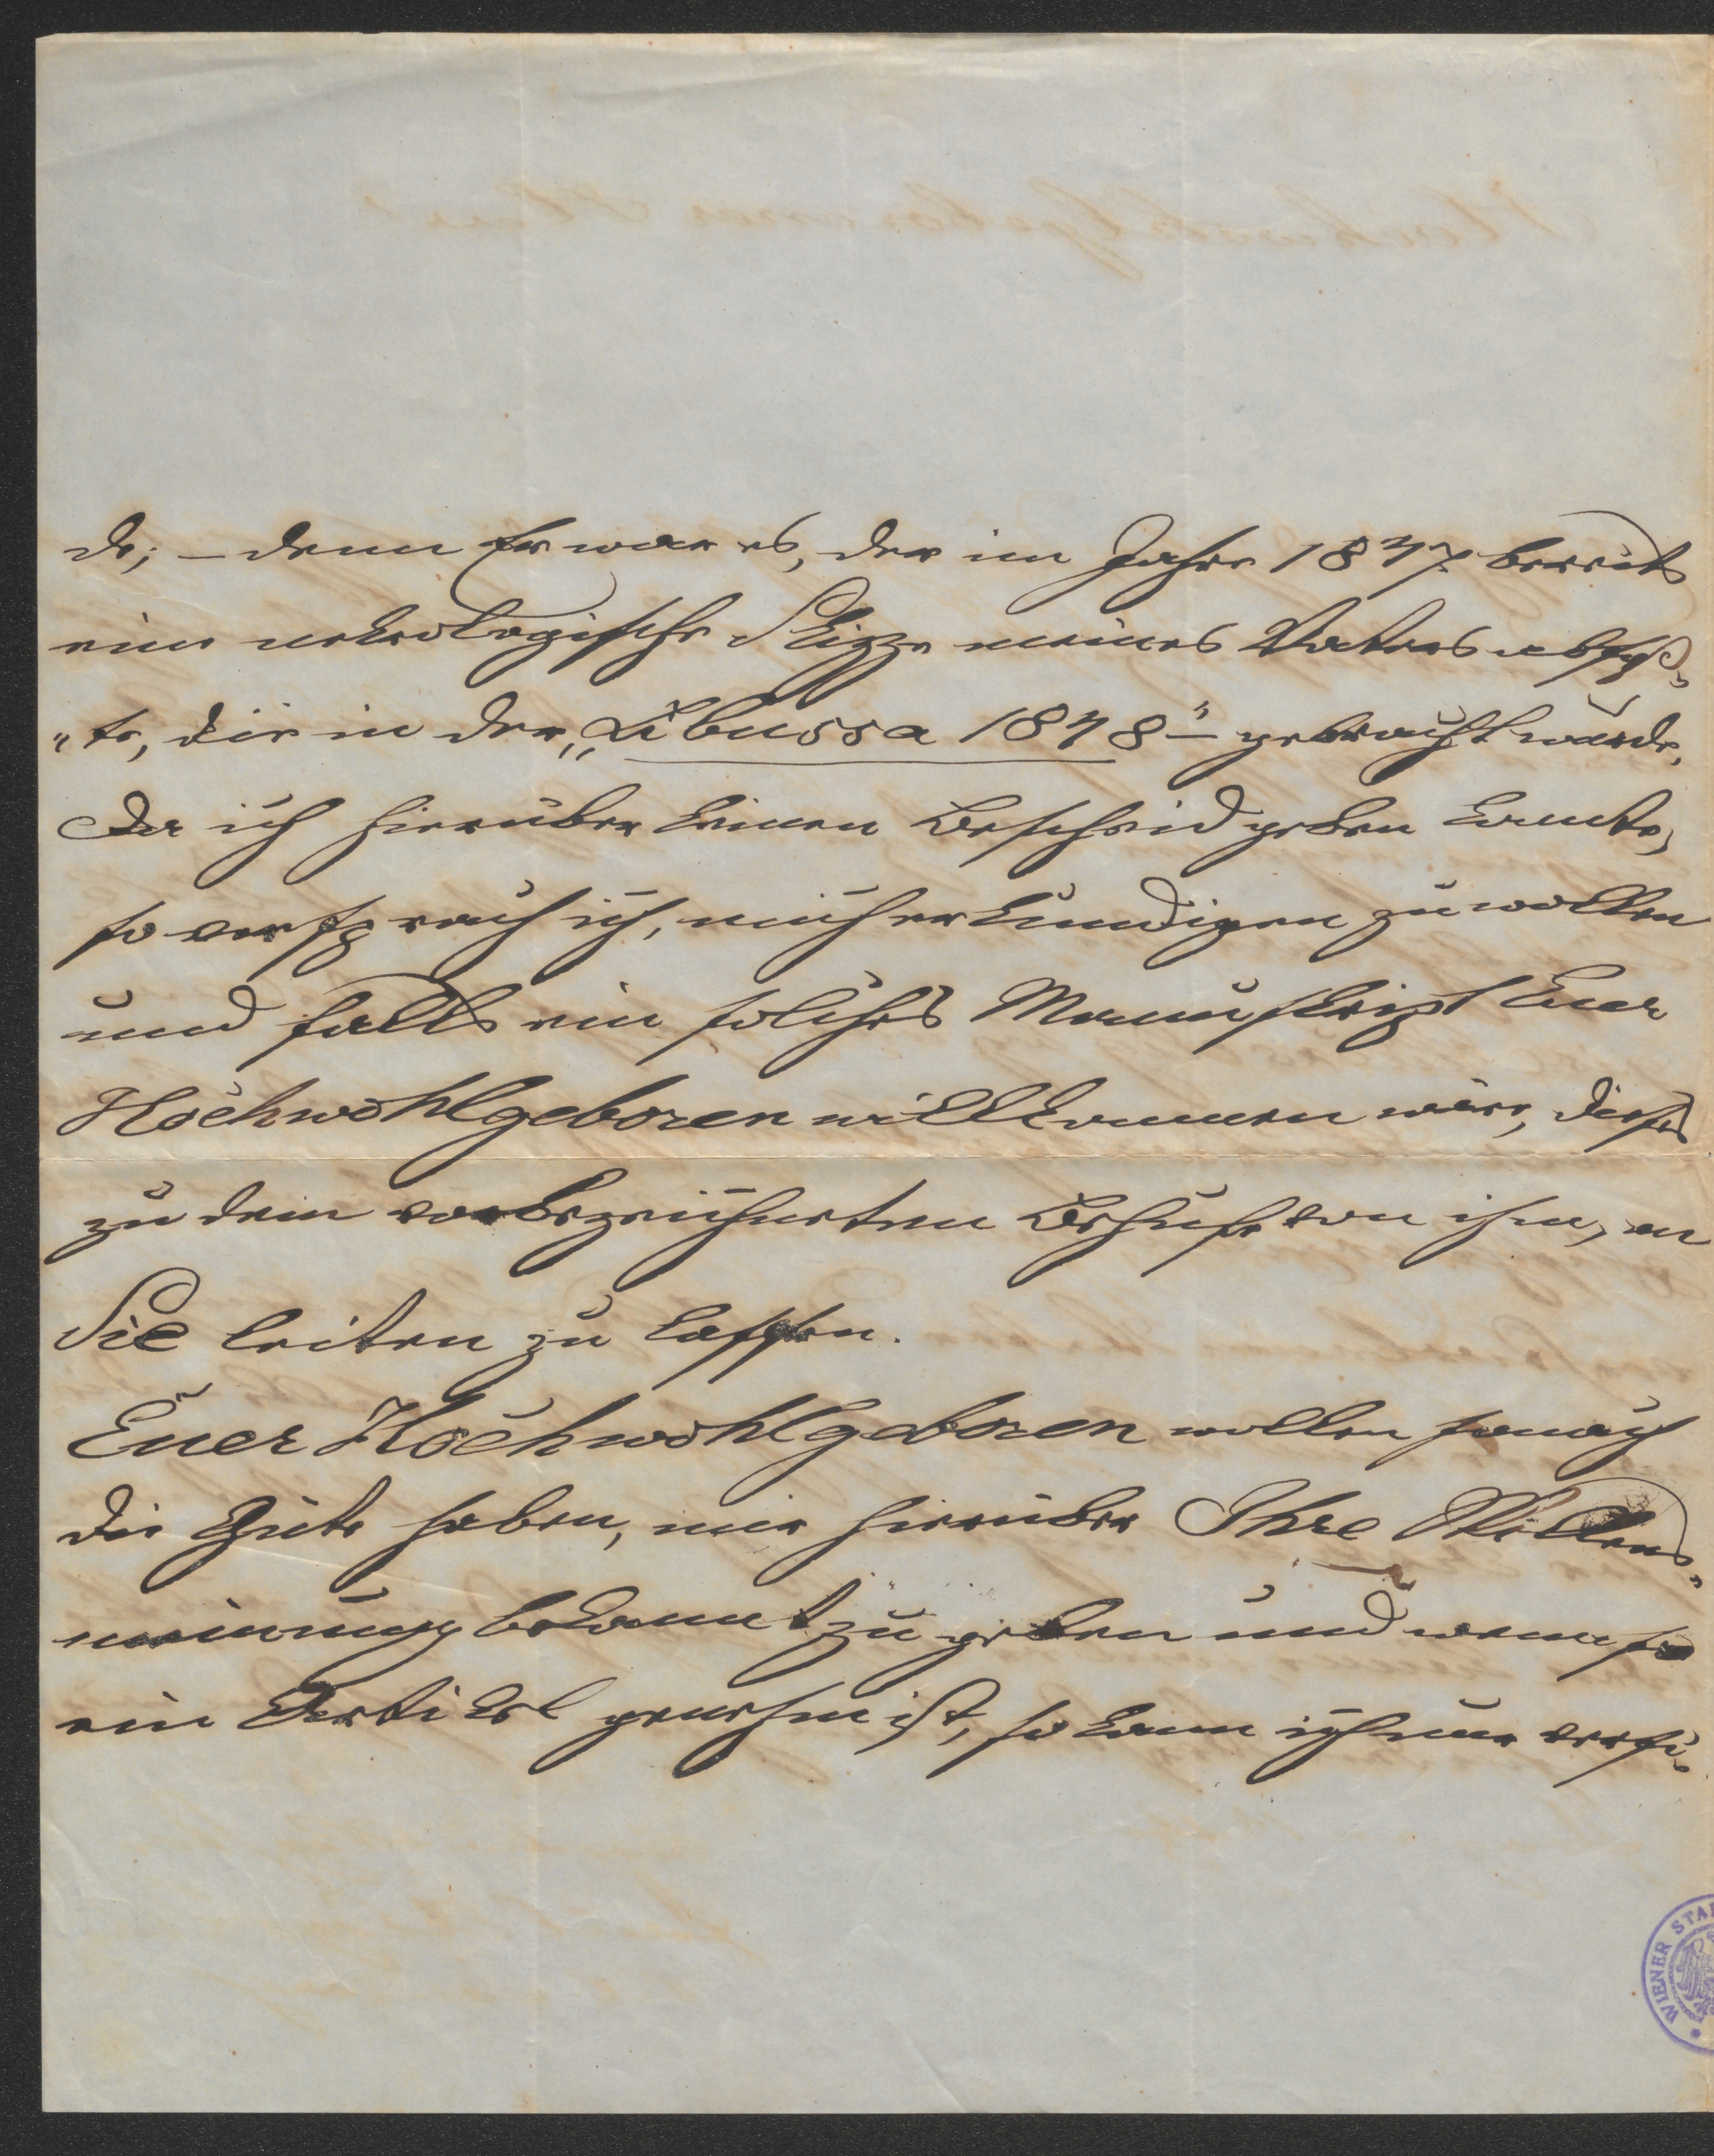 de; – denn Er war es, der im Jahre 1847 bereits
eine nekrologische Skizze meines Vaters abfaß„
„te, die in der „Libussa 1848“ – gebracht wurde.
Da ich hierüber keinen Bescheid geben konnte,
so versprach ich, mich erkundigen zu wollen
und falls ein solches Manuskript Euer
Hochwohlgeboren willkommen wäre, dieses
zu dem vorbezeichneten Behufe von ihm, an
Sie leiten zu lassen.
Euer Hochwohlgeboren wollen sonach
die Güte haben, mir hierüber Ihre Willens„
meinung bekannt zu geben und wenn so
ein Artikel genehm ist, so kann ich nur versi„
WIENER STA